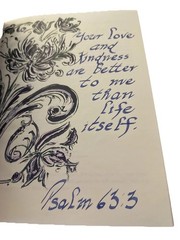 Your love
and
kindness
are better
to me
than
life
itself.
Psalm 63:3